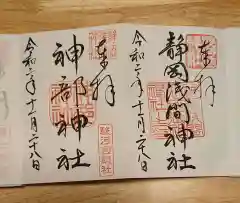 奉拝
静岡浅間神社
令和二年十一月二十八日
奉拝
神部神社
令和二年十一月二十八日